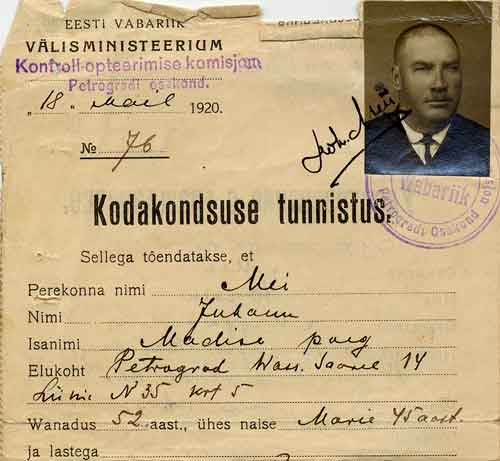 EESTI VABARIIK
VÄLISMINISTEERIUM
Kontroll-opteerimise komisjon
Petrogradi osakond.
"18." Mail 1920.
№ 76
Joh. Mei
Vabariik
Petrogradi Osakond
Kodakondsuse tunnistus.
Sellega tõendatakse, et
Perekonna nimi Mei
Nimi Juhann
Isanimi Madise poeg
Elukoht Petrograd Wass. Saare 14
Liinie N 35 krt 5
Wanadus 52 aast., ühes naise Marie 45 aast.
ja lastega